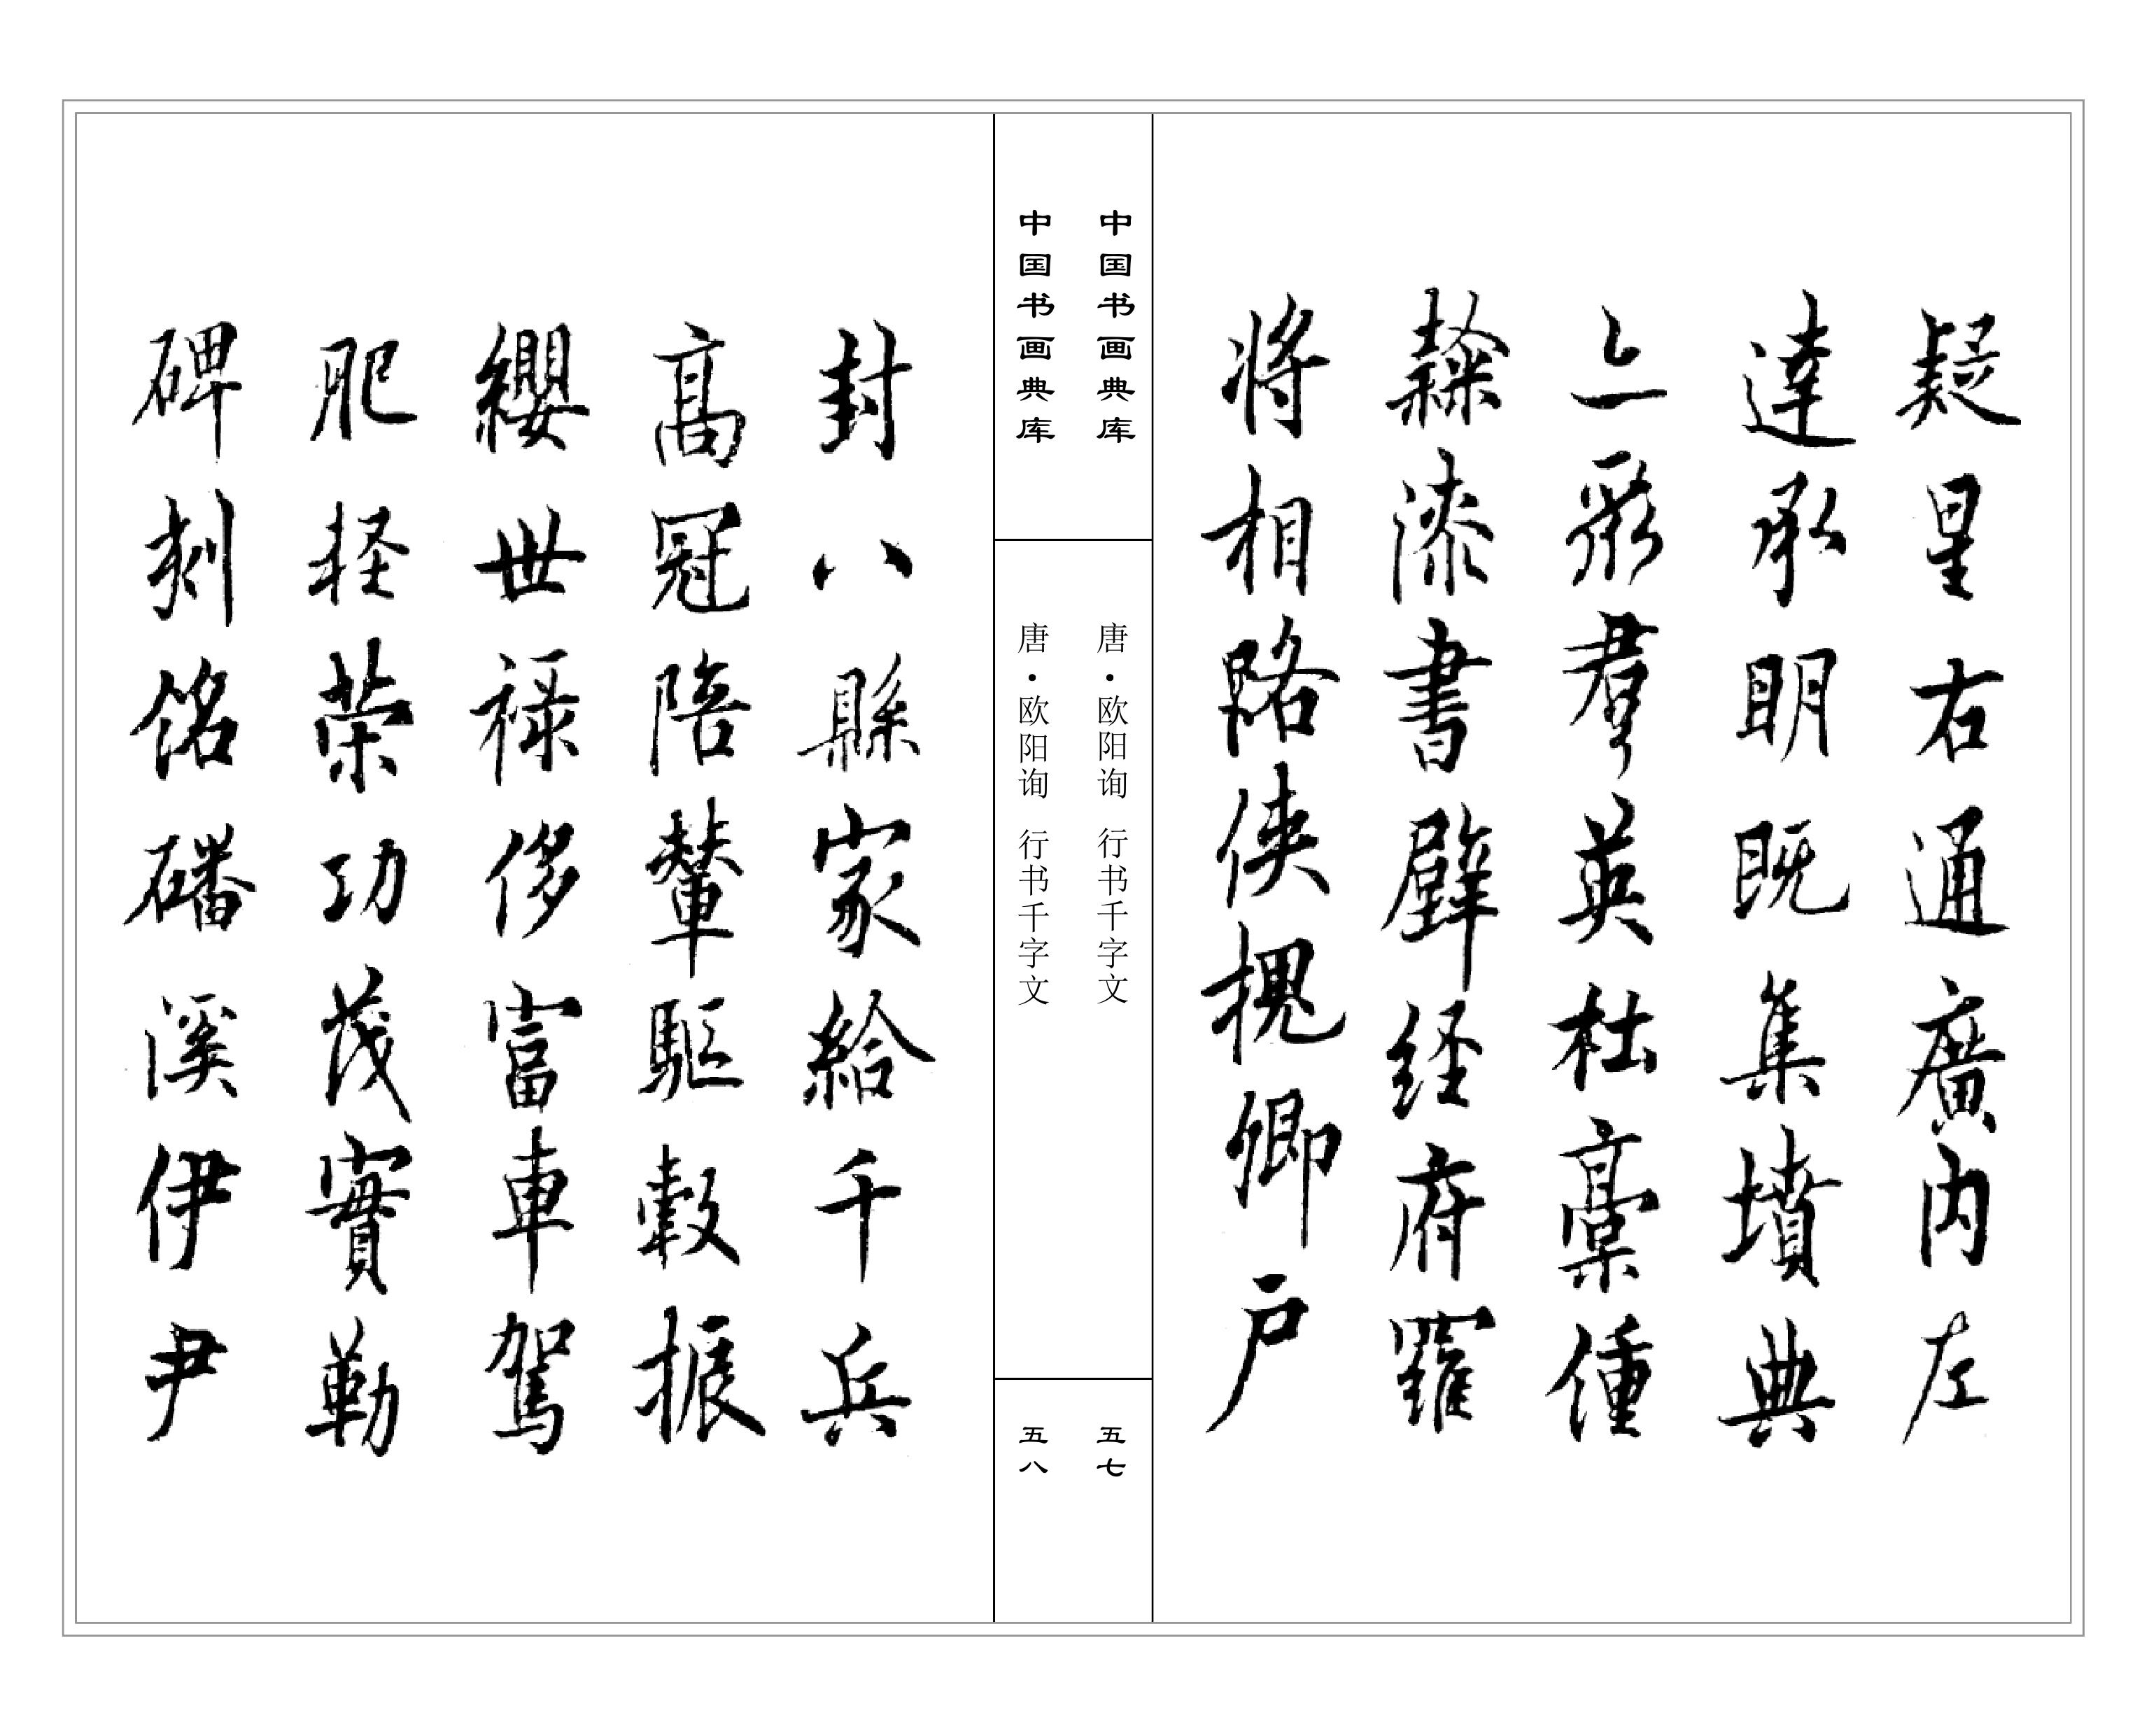 疑星右通廣内左
達承明既集墳典
亦聚群英杜稾鍾
隸漆書壁經府羅
將相路俠槐卿户
中国书画典库
唐·欧阳询 行书千字文
五七
中国书画典库
唐·欧阳询 行书千字文
五八
封八縣家給千兵
高冠陪輦驅轂振
纓世禄侈富車駕
肥軽榮功茂實勒
碑刻銘磻溪伊尹